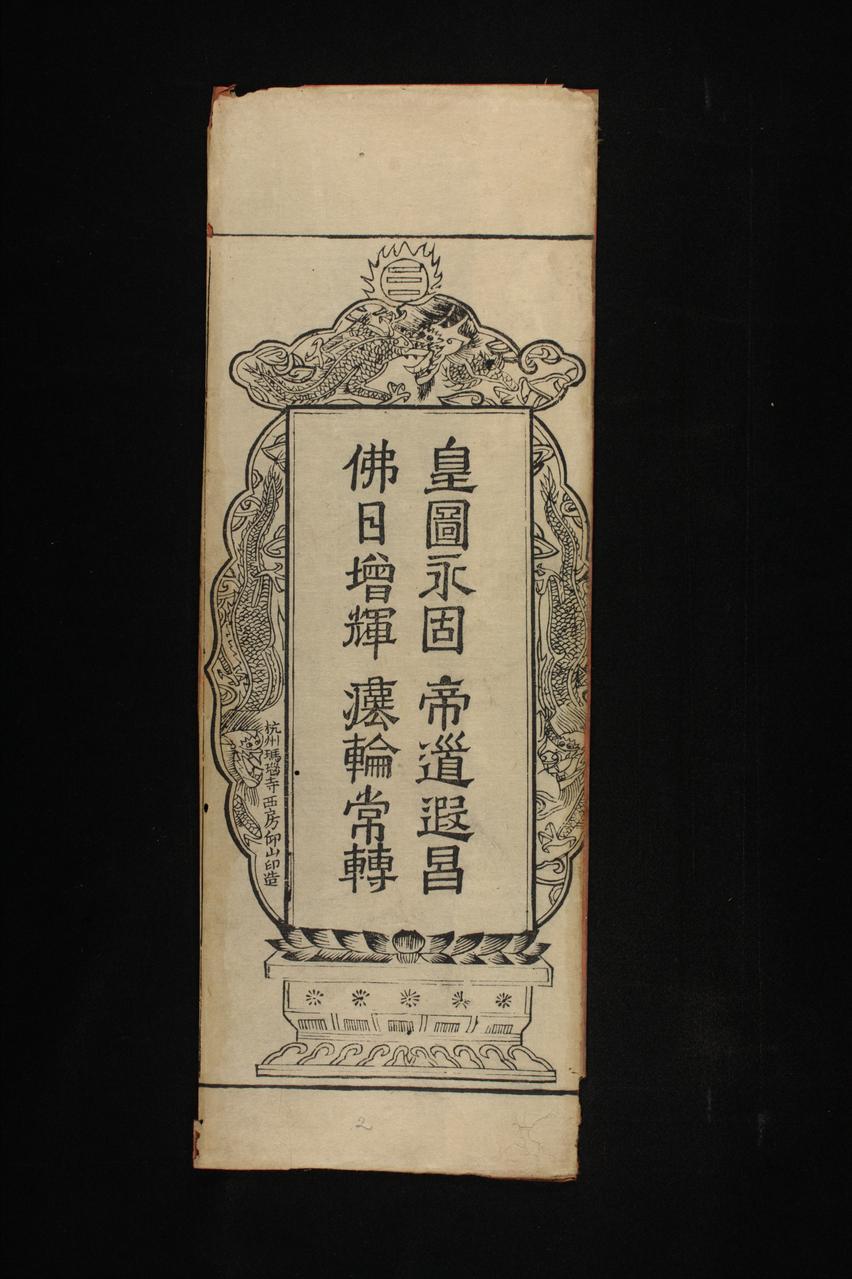 皇圖永固 帝道遐昌
佛日增輝 法輪常轉
杭州瑪瑙寺西房仰山印造
2